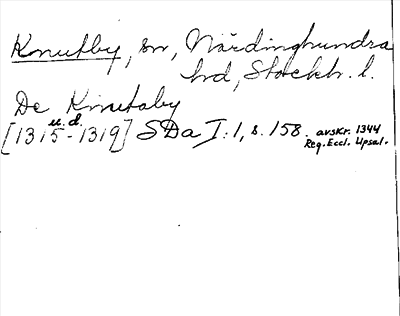 Knutby, sn, Närdinghundra
hd, Stockh. l.
De Knutaby
u.d.
[1315-1319] SDa I:1, s. 158. avskr. 1344
Reg. Eccl. Upsal.